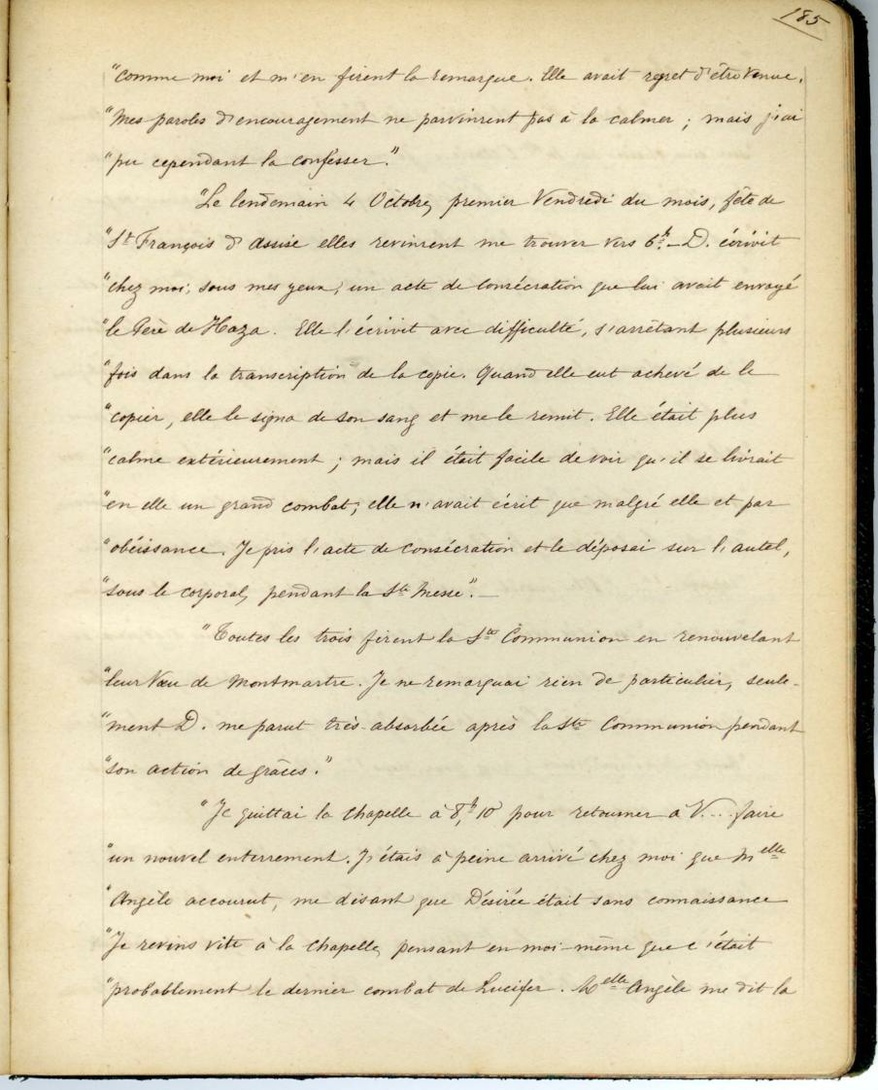 185
"comme moi et m'en firent la remarque. Elle avait regret d'être venue.
"Mes paroles d'encouragement ne parvinrent pas à la calmer ; mais j'ai
"pu cependant la confesser."
"Le lendemain 4 Octobre, premier Vendredi du mois, fête de
"St François d'Assise elles revinrent me trouver vers 6h. _ D. écrivit
"chez moi, sous mes yeux, un acte de consécration que lui avait envoyé
"le Père de Haza. Elle l'écrivit avec difficulté, s'arrêtant plusieurs
"fois dans la transcription de la copie. Quand elle eut achevé de le
"copier, elle le signa de son sang et me le remit. Elle était plus
"calme extérieurement ; mais il était facile de voir qu'il se livrait
"en elle un grand combat ; elle n'avait écrit que malgré elle et par
"obéissance. Je pris l'acte de consécration et le déposai sur l'autel,
"sous le corporal, pendant la Ste Messe". _
"Toutes les trois firent la Ste Communion en renouvelant
"leur Vœu de Montmartre. Je ne remarquai rien de particulier, seule-
"ment D. me parut très-absorbée après la Ste Communion pendant
"son action de grâces."
"Je quittai la chapelle à 8h,10 pour retourner à V... faire
"un nouvel enterrement. J'étais à peine arrivé chez moi que Melle
"Angèle accourut, me disant que Désirée était sans connaissance
"Je revins vite à la chapelle, pensant en moi-même que c'était
"probablement le dernier combat de Lucifer. Melle Angèle me dit la